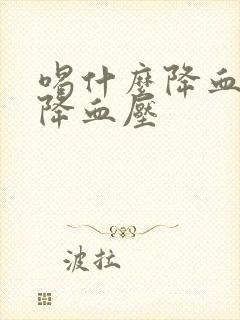 喝什麼降血
降血壓
波拉